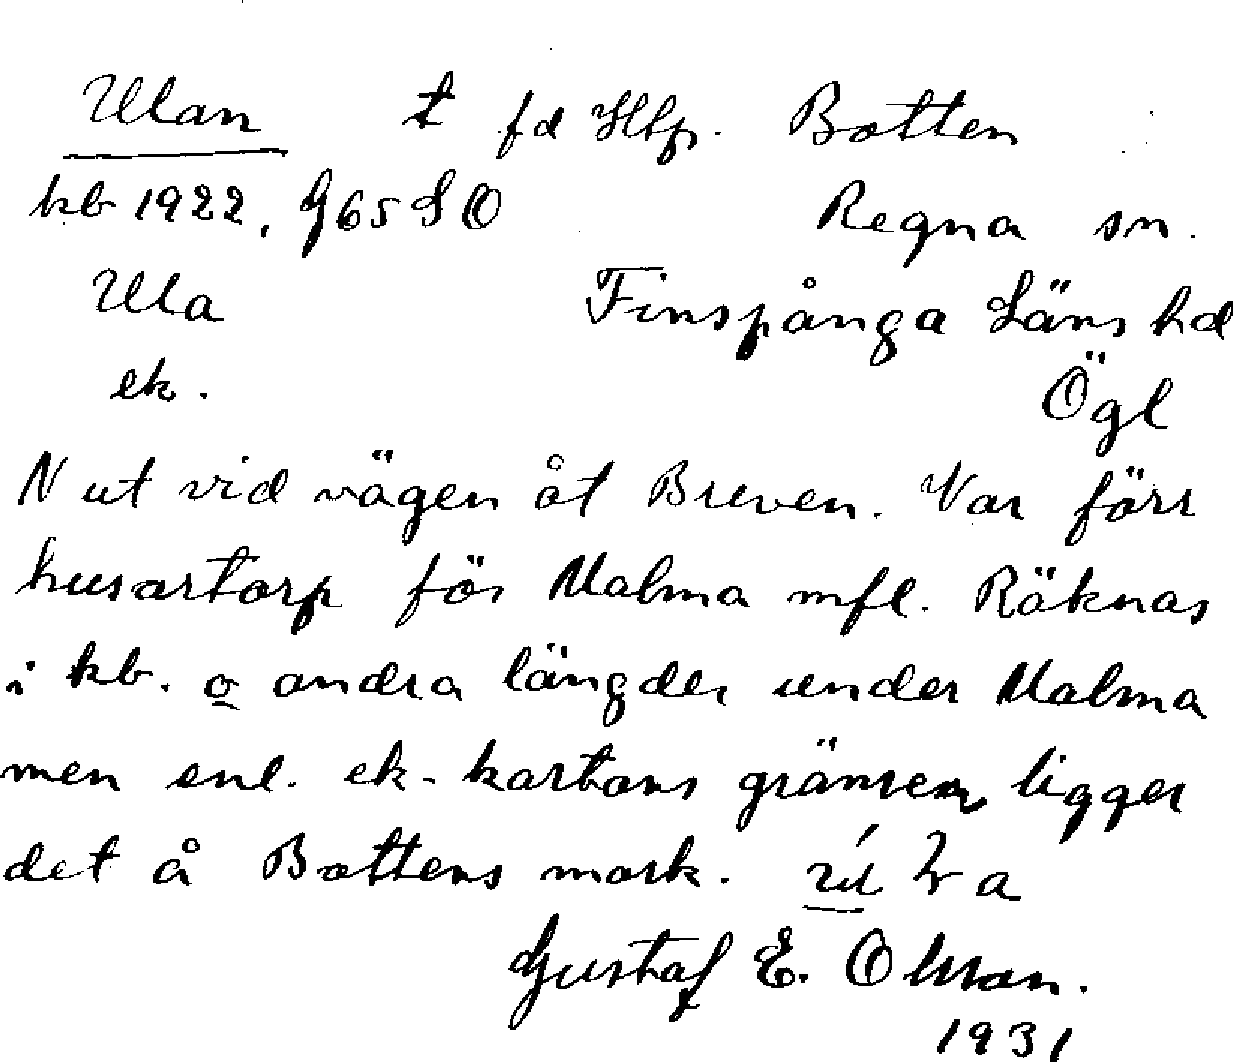 Ulan t fd Hlp. Botten
kb 1922. G65SO Regna sn.
Ula Finspånga Läns hd
ek. Ögl
N ut vid vägen åt Breven. Var förr
husartorp för Malma mfl. Räknas
i kb. o andra längder under Malma
men enl. ek-kartans gränser ligger
det å Bottens mark.
Gustaf E. Olsson.
1931